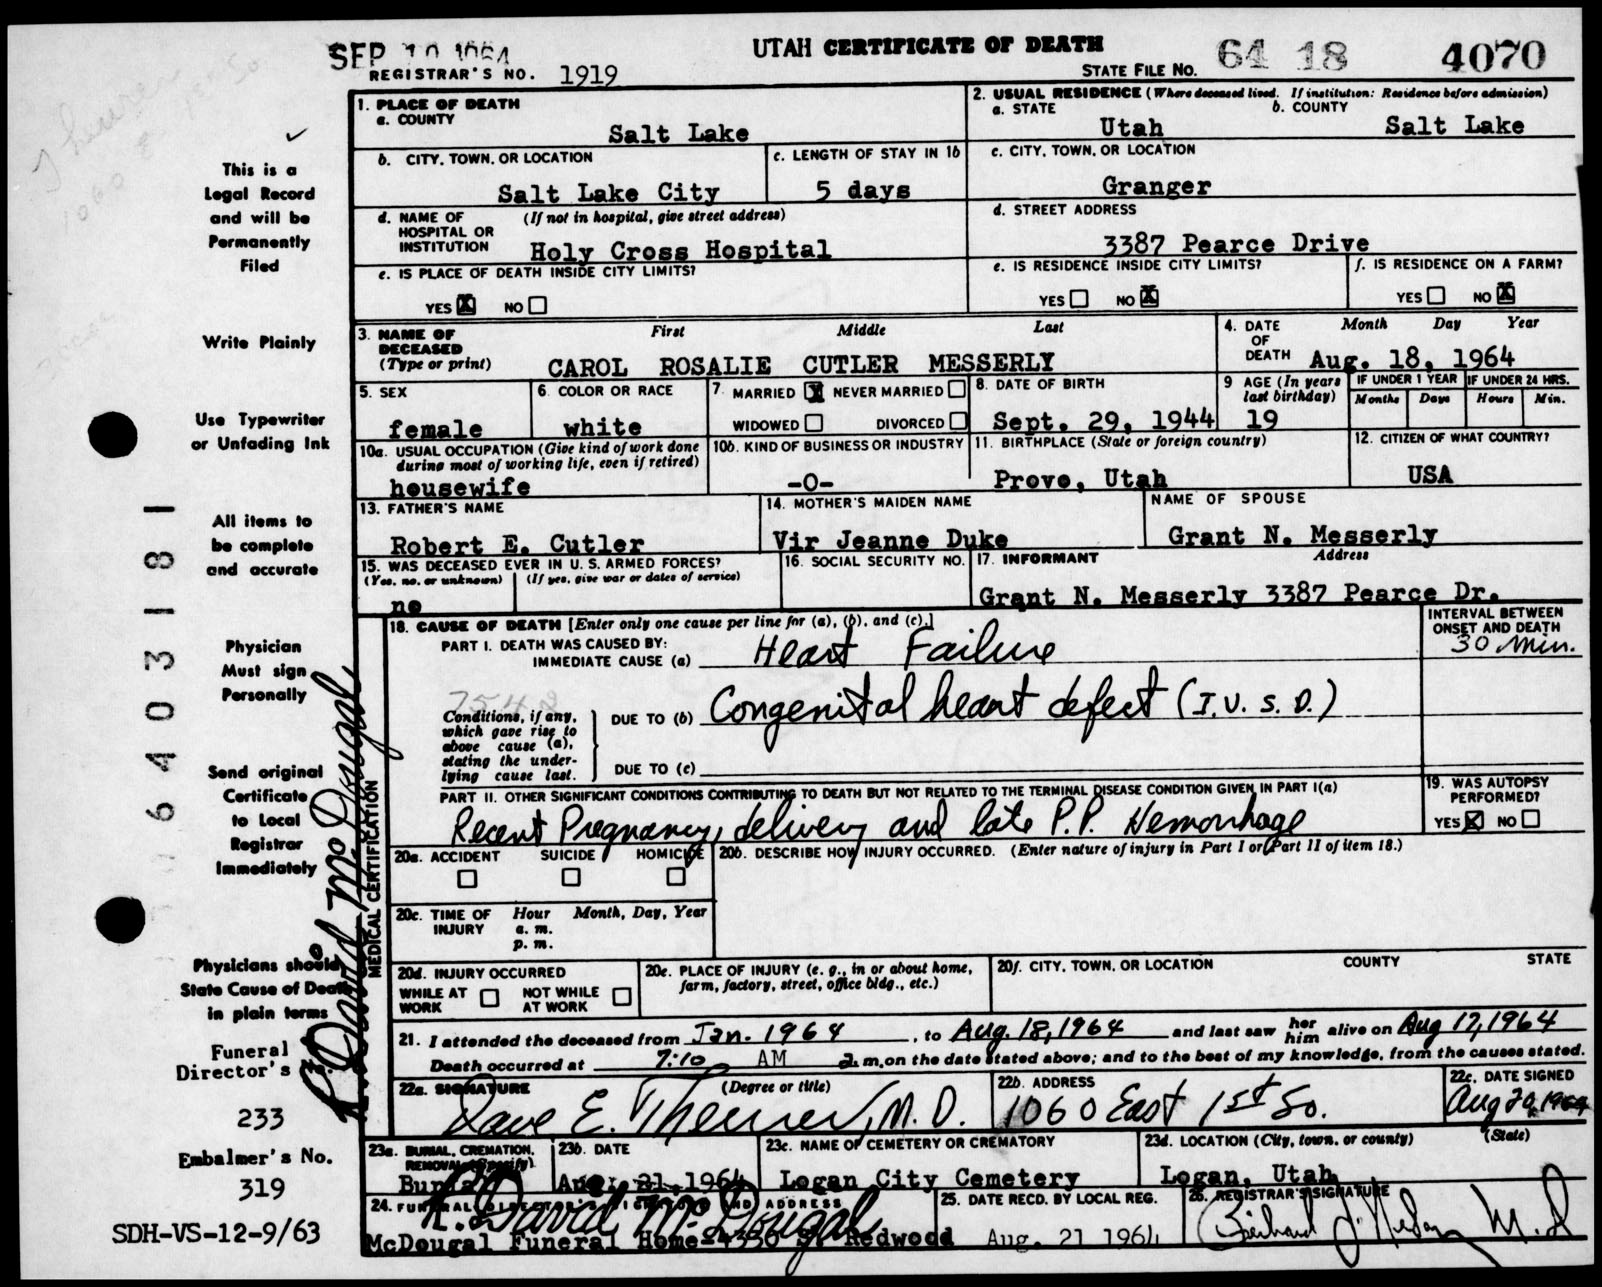 SEP 10 1964
UTAH CERTIFICATE OF DEATH
REGISTRAR'S NO. 1919
STATE FILE NO. 64 18 4070
This is a
Legal Record
and will be
Permanently
Filed
Write Plainly
Use Typewriter
or Unfading Ink
All items to
be complete
and accurate
Physician
Must sign
Personally
Send original
Certificate
to Local
Registrar
Immediately
Physicians should
State Cause of Death
in plain terms
Funeral
Director's No.
233
Embalmer's No.
319
SDH-VS-12-9/63
6403181
R. David McDougal
MEDICAL CERTIFICATION
1. PLACE OF DEATH
a. COUNTY
Salt Lake
2. USUAL RESIDENCE (Where deceased lived. If institution: Residence before admission)
a. STATE b. COUNTY
Utah Salt Lake
b. CITY, TOWN, OR LOCATION
Salt Lake City
c. LENGTH OF STAY IN 1b
5 days
c. CITY, TOWN, OR LOCATION
Granger
d. NAME OF HOSPITAL OR INSTITUTION (If not in hospital, give street address)
Holy Cross Hospital
d. STREET ADDRESS
3387 Pearce Drive
e. IS PLACE OF DEATH INSIDE CITY LIMITS?
YES X NO
e. IS RESIDENCE INSIDE CITY LIMITS?
YES NO X
f. IS RESIDENCE ON A FARM?
YES NO X
3. NAME OF DECEASED (Type or print) First Middle Last
CAROL ROSALIE CUTLER MESSERLY
4. DATE OF DEATH Month Day Year
Aug. 18, 1964
5. SEX
female
6. COLOR OR RACE
white
7. MARRIED X NEVER MARRIED
WIDOWED DIVORCED
8. DATE OF BIRTH
Sept. 29, 1944
9 AGE (In years last birthday)
19
IF UNDER 1 YEAR
Months Days
IF UNDER 24 HRS.
Hours Min.
10a. USUAL OCCUPATION (Give kind of work done during most of working life, even if retired)
housewife
10b. KIND OF BUSINESS OR INDUSTRY
-0-
11. BIRTHPLACE (State or foreign country)
Provo, Utah
12. CITIZEN OF WHAT COUNTRY?
USA
13. FATHER'S NAME
Robert E. Cutler
14. MOTHER'S MAIDEN NAME
Vir Jeanne Duke
NAME OF SPOUSE
Grant N. Messerly
15. WAS DECEASED EVER IN U. S. ARMED FORCES?
(Yes, no, or unknown) (If yes, give war or dates of service)
no
16. SOCIAL SECURITY NO.
17. INFORMANT Address
Grant N. Messerly 3387 Pearce Dr.
18. CAUSE OF DEATH [Enter only one cause per line for (a), (b), and (c).]
INTERVAL BETWEEN ONSET AND DEATH
PART I. DEATH WAS CAUSED BY:
IMMEDIATE CAUSE (a) Heart Failure
30 Min.
7542
Conditions, if any, which gave rise to above cause (a), stating the underlying cause last.
DUE TO (b) Congenital heart defect (I.V.S.D.)
DUE TO (c)
PART II. OTHER SIGNIFICANT CONDITIONS CONTRIBUTING TO DEATH BUT NOT RELATED TO THE TERMINAL DISEASE CONDITION GIVEN IN PART I(a)
Recent Pregnancy, delivery and late P.P. Hemorrhage
19. WAS AUTOPSY PERFORMED?
YES X NO
20a. ACCIDENT SUICIDE HOMICIDE
20b. DESCRIBE HOW INJURY OCCURRED. (Enter nature of injury in Part I or Part II of item 18.)
20c. TIME OF INJURY Hour Month, Day, Year
a. m.
p. m.
20d. INJURY OCCURRED
WHILE AT WORK NOT WHILE AT WORK
20e. PLACE OF INJURY (e. g., in or about home, farm, factory, street, office bldg., etc.)
20f. CITY, TOWN, OR LOCATION COUNTY STATE
21. I attended the deceased from Jan. 1964, to Aug. 18, 1964 and last saw her him alive on Aug 17, 1964
Death occurred at 7:10 AM a m, on the date stated above; and to the best of my knowledge, from the causes stated.
22a. SIGNATURE (Degree or title)
Dave E. Theurer, M.D.
22b. ADDRESS
1060 East 1st So.
22c. DATE SIGNED
Aug 20, 1964
23a. BURIAL, CREMATION, REMOVAL (Specify)
Burial
23b. DATE
Aug. 21, 1964
23c. NAME OF CEMETERY OR CREMATORY
Logan City Cemetery
23d. LOCATION (City, town, or county) (State)
Logan, Utah
24. FUNERAL DIRECTOR'S SIGNATURE AND ADDRESS
R. David McDougal
McDougal Funeral Home-4330 S. Redwood
25. DATE RECD. BY LOCAL REG.
Aug. 21 1964
26. REGISTRAR'S SIGNATURE
M.D.